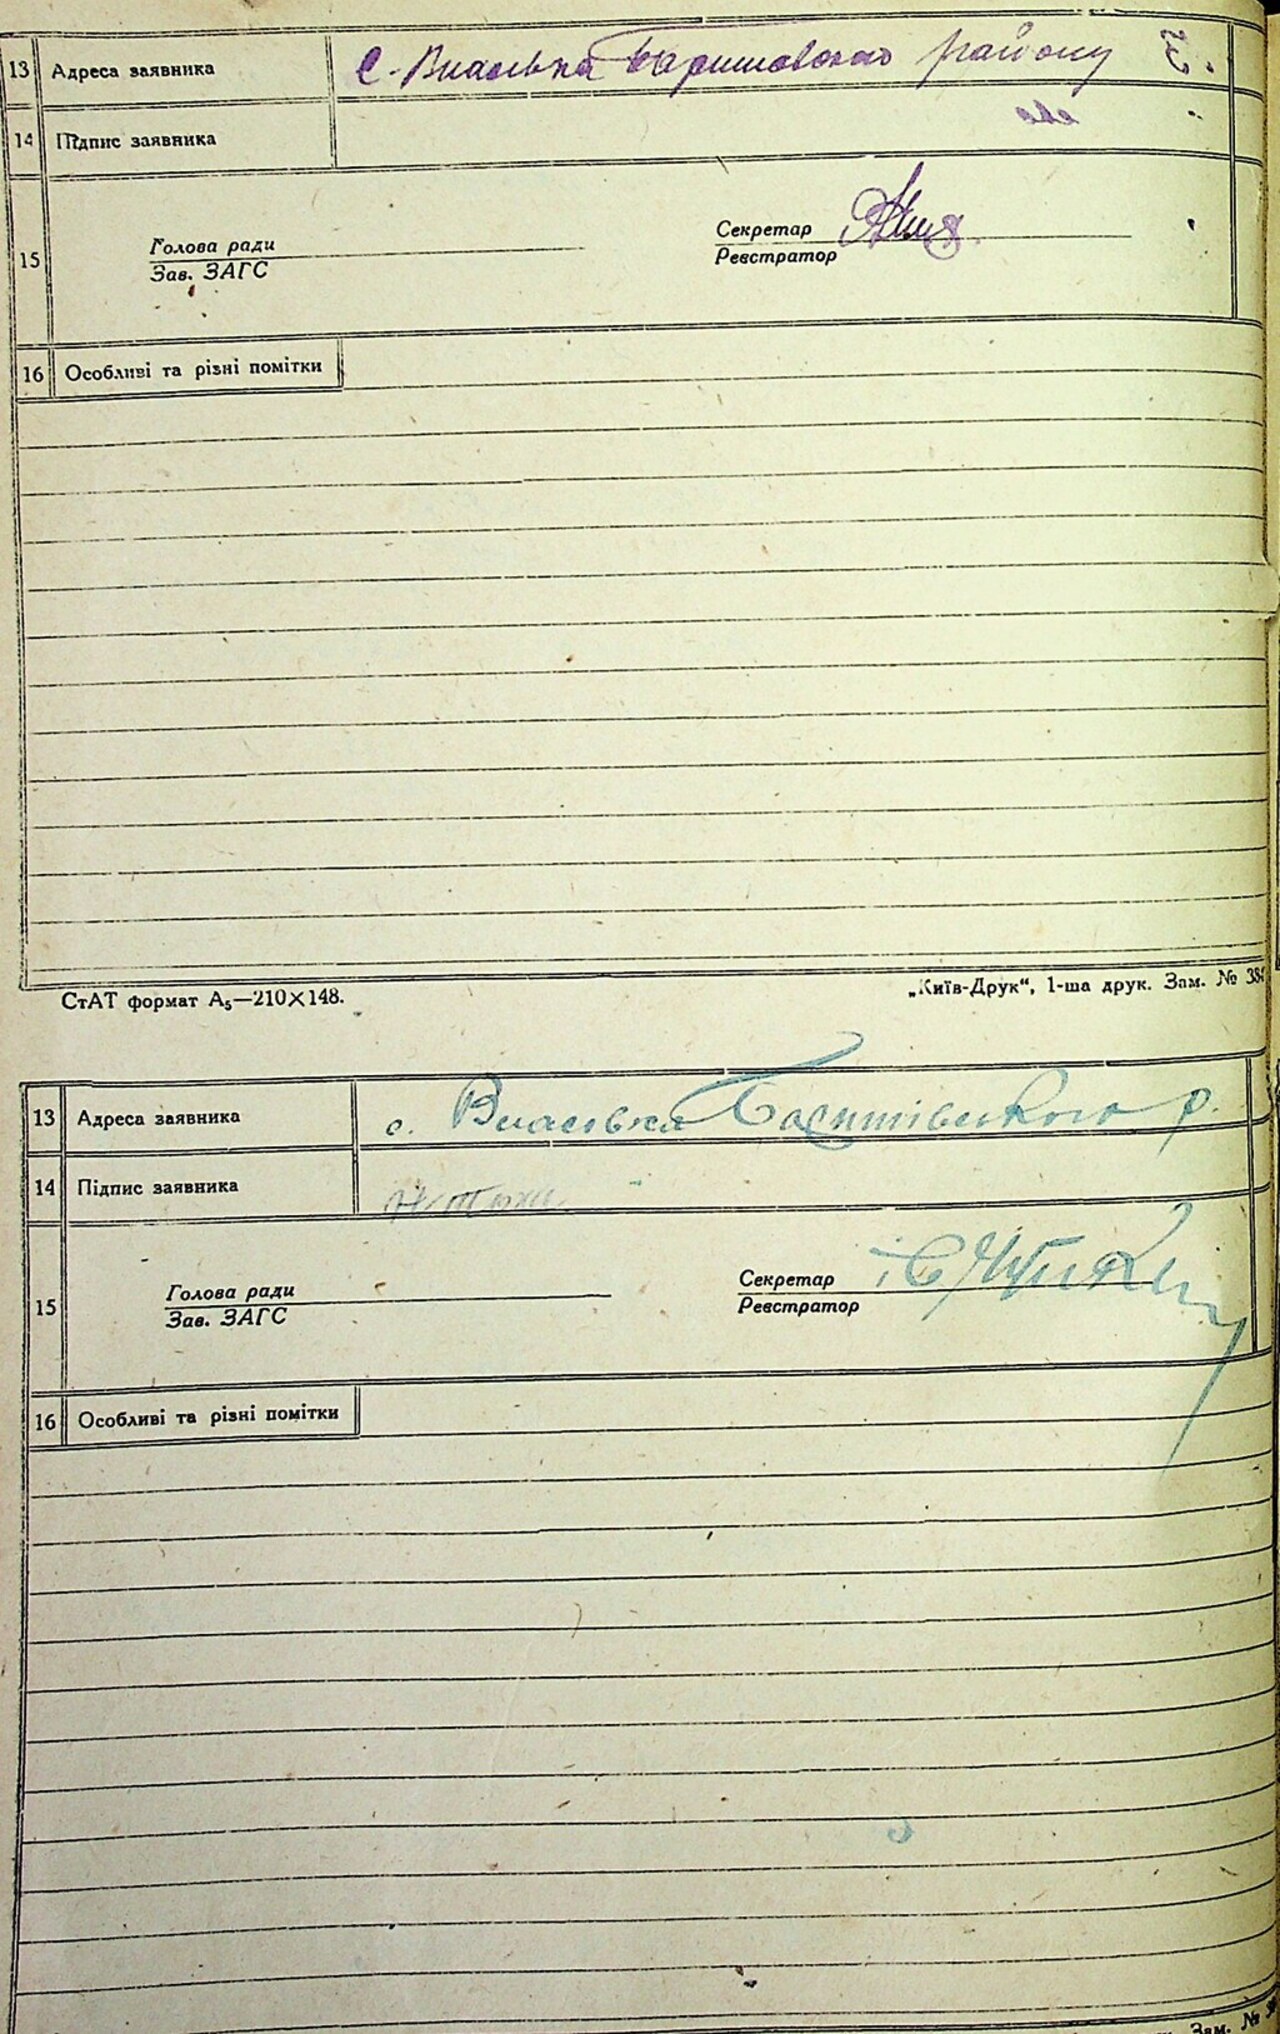 13 Адреса заявника с. Власівка Баришовского району
14 Підпис заявника
15 Голова ради Секретар
Зав. ЗАГС Реєстратор
16 Особливі та різні помітки
СтАТ формат А5—210×148. „Київ-Друк“, 1-ша друк. Зам. №
13 Адреса заявника с. Власівка Баришівського р.
14 Підпис заявника
15 Голова ради Секретар
Зав. ЗАГС Реєстратор
16 Особливі та різні помітки
Зам. №